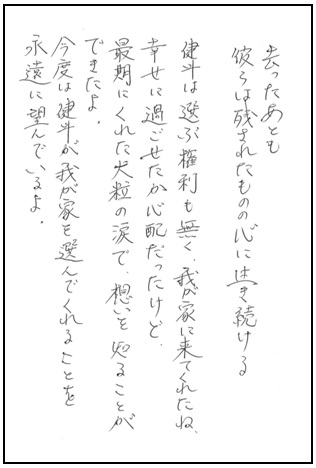 去ったあとも
彼らは残されたものの心に生き続ける
健斗は選ぶ権利も無く、我が家に来てくれたね、
幸せに過ごせたか心配だったけど、
最期にくれた大粒の涙で、想いを知ることが
できたよ。
今度は健斗が我が家を選んでくれることを
永遠に望んでいるよ。